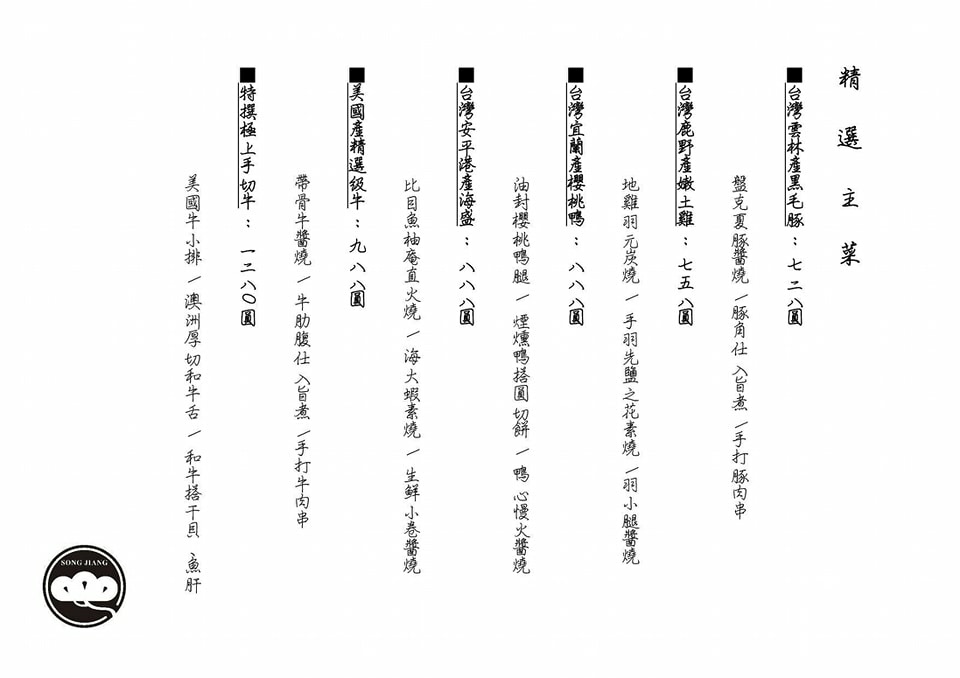 精選主菜
■台灣雲林產黑毛豚：七二八圓
盤克夏豚醬燒／豚角仕入旨煮／手打豚肉串
■台灣鹿野產嫩土雞：七五八圓
地雞羽元炭燒／手羽先鹽之花素燒／羽小腿醬燒
■台灣宜蘭產櫻桃鴨：八八八圓
油封櫻桃鴨腿／煙燻鴨搭圓切餅／鴨心慢火醬燒
■台灣安平港產海盛：八八八圓
比目魚柚庵直火燒／海大蝦素燒／生鮮小卷醬燒
■美國產精選級牛：九八八圓
帶骨牛醬燒／牛肋腹仕入旨煮／手打牛肉串
■特撰極上手切牛：一二八〇圓
美國牛小排／澳洲厚切和牛舌／和牛搭干貝、魚肝
SONG JIANG